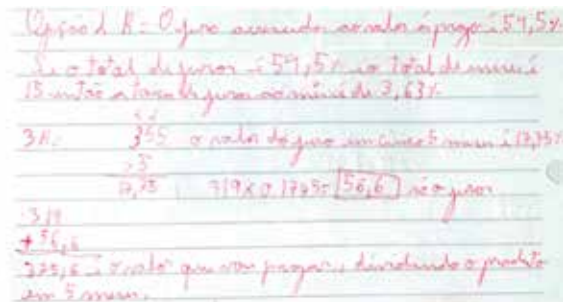 Opção 2 R= O juro acrescido ao valor á prazo é 59,5%
Se o total de juros é 59,5% e o total de meses é
15 então a taxa de juros ao mês é de 3,63%
3R= 355 o valor do juro em cinco 5 meses é 17,75%
×5
17,75 319×0,1775= 56,6 é o juros
319
+56,6
375,6 é o valor que vou pagar, dividindo o produto
em 5 meses.